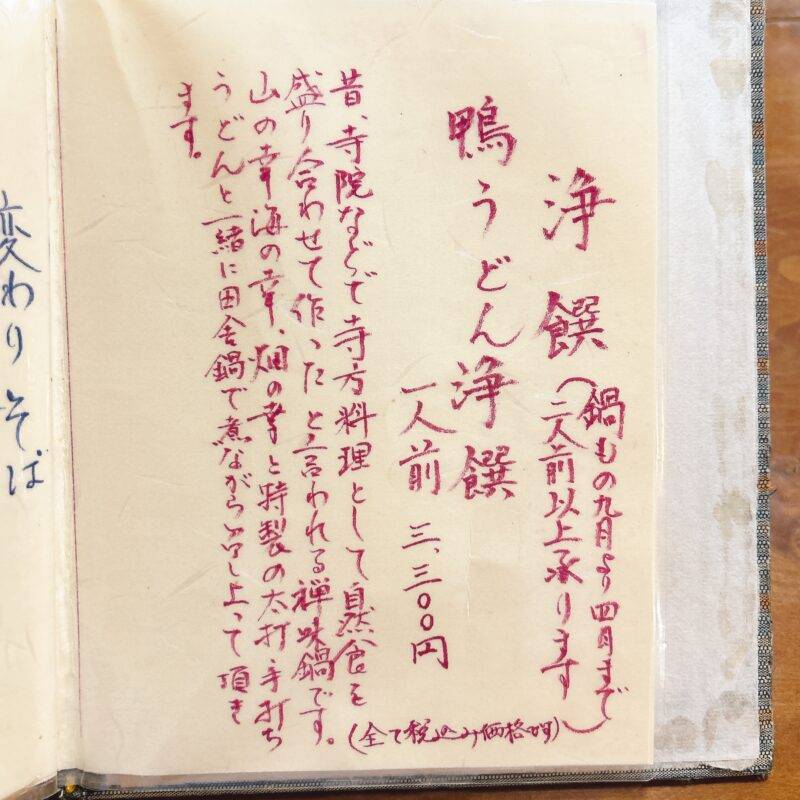 浄饌
（鍋もの九月より四月まで
二人前以上承ります）
鴨うどん浄饌
一人前 三、三〇〇円
昔、寺院などで寺方料理として自然食を
盛り合わせて作ったと言われる禅味鍋です。
山の幸海の幸、畑の幸と特製の太打手打ち
うどんと一緒に田舎鍋で煮ながら召し上って頂き
ます。
（全て税込み価格です）
変わりそば